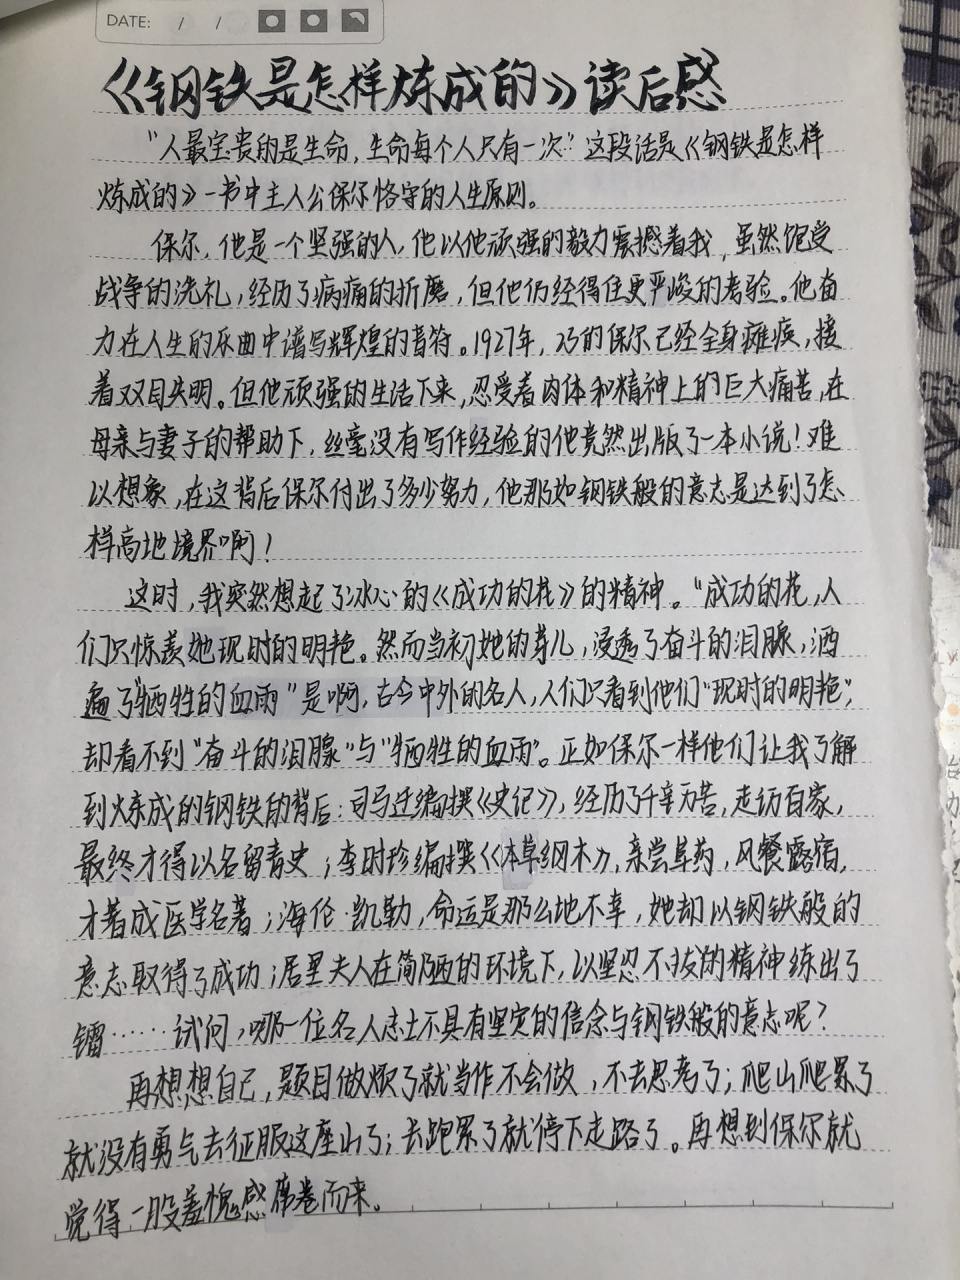 DATE: / /
《钢铁是怎样炼成的》读后感
"人最宝贵的是生命,生命每个人只有一次"这段话是《钢铁是怎样
炼成的》一书中主人公保尔恪守的人生原则。
保尔,他是一个坚强的人,他以他顽强的毅力震撼着我,虽然饱受
战争的洗礼,经历了病痛的折磨,但他仍经得住更严峻的考验。他奋
力在人生的乐曲中谱写辉煌的音符。1927年,23的保尔已经全身瘫痪,接
着双目失明。但他顽强的生活下来,忍受着肉体和精神上的巨大痛苦,在
母亲与妻子的帮助下,丝毫没有写作经验的他竟然出版了一本小说!难
以想象,在这背后保尔付出了多少努力,他那如钢铁般的意志是达到了怎
样高地境界啊!
这时,我突然想起了冰心的《成功的花》的精神。"成功的花,人
们只惊羡她现时的明艳。然而当初她的芽儿,浸透了奋斗的泪腺,洒
遍了牺牲的血雨"是啊,古今中外的名人,人们只看到他们"现时的明艳",
却看不到"奋斗的泪腺"与"牺牲的血雨"。正如保尔一样他们让我了解
到炼成的钢铁的背后:司马迁编撰《史记》,经历了千辛万苦,走访百家,
最终才得以名留青史;李时珍编撰《本草纲木》,亲尝草药,风餐露宿,
才著成医学名著;海伦·凯勒,命运是那么地不幸,她却以钢铁般的
意志取得了成功;居里夫人在简陋的环境下,以坚忍不拔的精神练出了
镭……试问,哪一位名人志士不具有坚定的信念与钢铁般的意志呢?
再想想自己,题目做烦了就当作不会做,不去思考了;爬山爬累了
就没有勇气去征服这座山了;去跑累了就停下走路了。再想到保尔就
觉得一股羞愧感席卷而来。